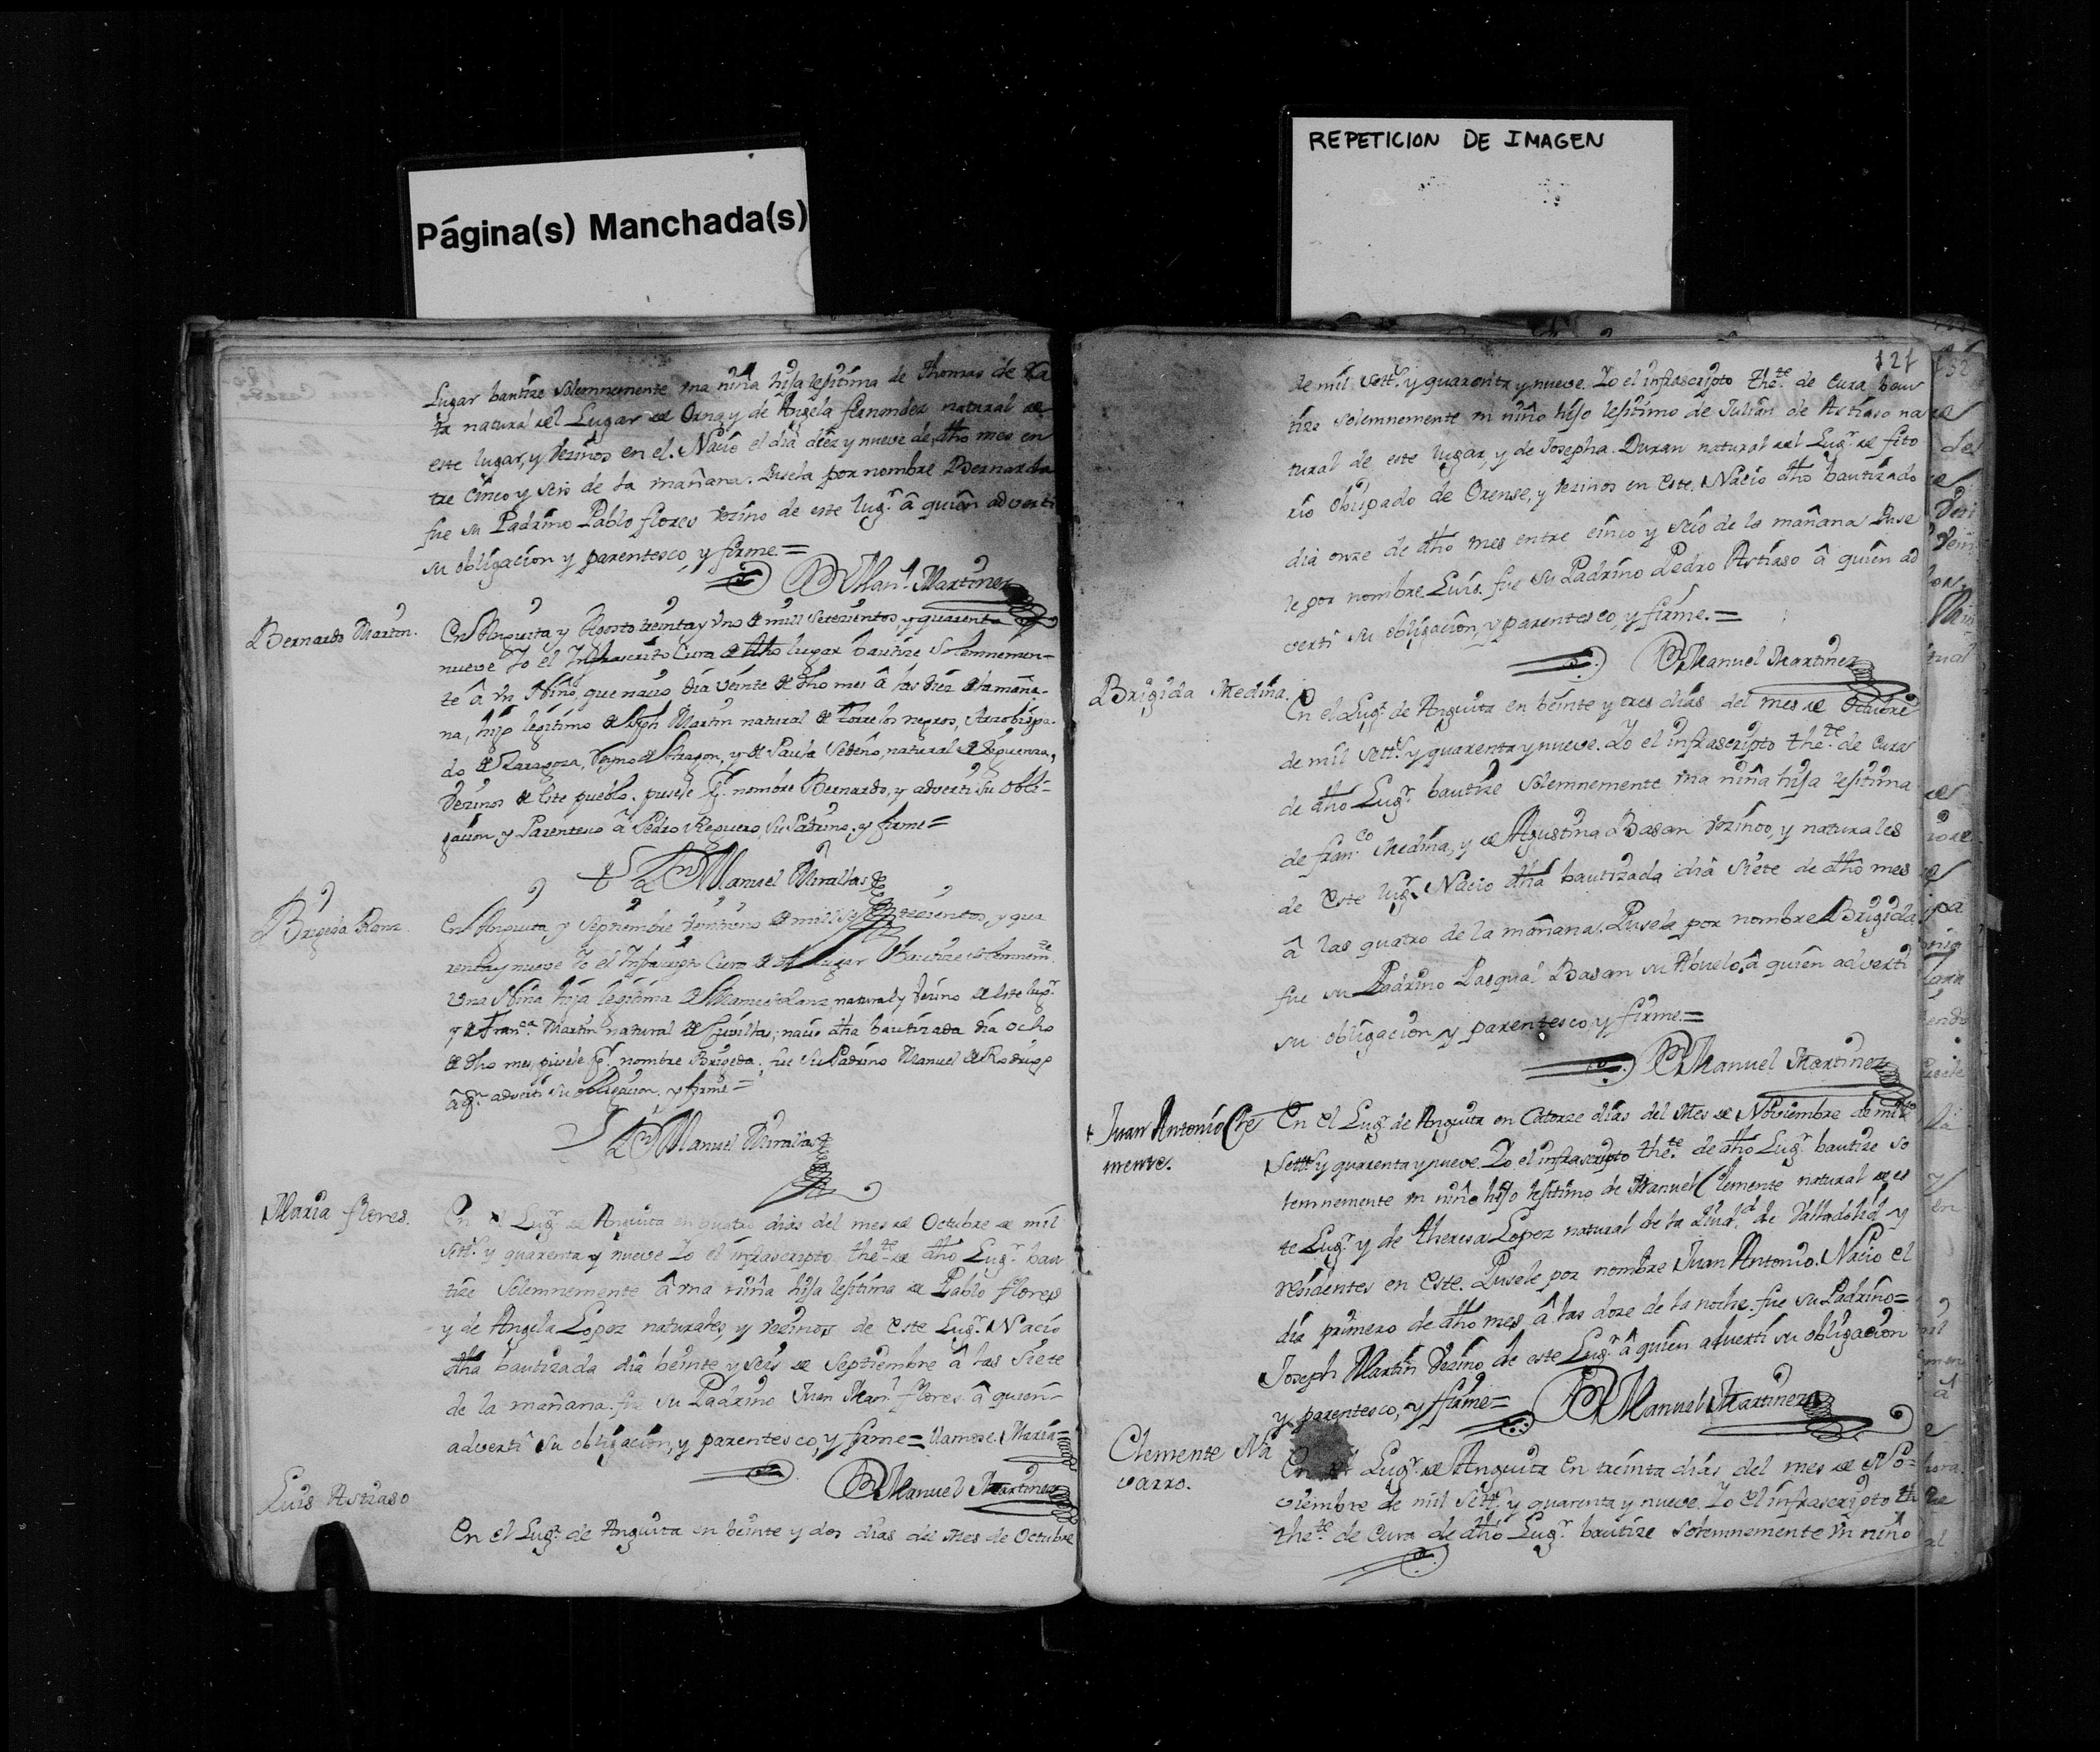 Página(s) Manchada(s)
REPETICION DE IMAGEN
Lugar bautize solemnemente una niña hija lesitima de Thomas de
natural del Lugar de Orna y de Angela fernandez natural de
este lugar, y vezinos en el. Nacio el dia diez y nueve de dho mes en
tre cinco y seis de la mañana. Pusela por nombre Bernarda
fue su Padrino Pablo flores vezino de este lugr. â quien adverti
su obligacion y parentesco, y firme =
Manl. Martinez
Bernardo Martin.
En Anguita y Agosto treinta y uno de mill setezientos, y quarenta
nueve Yo el Infrascrito Cura de dho lugar bautize Solemnemen-
te â un Niño, que nacio dia veinte de dho mes â las diez de la maña-
na, hijo legitimo de Joseph Martin natural de Torre los negros, Arzobispa-
do de Zaragoza, Reyno de Aragon, y de Paula Sedeño, natural de Siguenza,
Vezinos de este pueblo. pusele pr. nombre Bernardo, y adverti su obli-
gacion, y Parentesco â Pedro Reguero, su Padrino, y firme =
Manuel Miralles
Brigeda Ranz
En Anguita y Septiembre veintiuno de mill setezientos, y qua
renta y nueve Yo el Infrascripto Cura de dho Lugar Bautize solemnemte.
Una Niña hija legitima de Manuel Ranz, natural y vezino de este lugr.
y de Franca. Martin natural de Luvilla; nacio dha bautizada dia ocho
de dho mes, pusele pr. nombre Brigeda; fue su Padrino Manuel de Rodrigo
â qn. adverti su obligacion, y firme =
Manuel Miralles
Maria flores.
En el Lugr. de Anguita en quatro dias del mes de Octubre de mil
setts. y quarenta y nueve Yo el infrascripto thete. de dho Lugr. bau
tize solemnemente â una niña hija lesitima de Pablo flores
y de Angela Lopez naturales, y vezinos de este Lugr. Nacio
dha bautizada dia beinte y seis de Septiembre â las siete
de la mañana. fue su Padrino Juan Manl. flores â quien
adverti su obligacion, y parentesco, y firme = llamose. Maria =
Manuel Martinez
Luis Astiaso
En el Lugr. de Anguita en beinte y dos dias del Mes de Octubre
121
de mil setts. y quarenta y nueve. Yo el infrascripto thete. de cura bau
tize solemnemente un niño hijo lesitimo de Julian de Astiaso na
tural de este lugar, y de Josepha Duran natural del Lugr. de fito
rio Obispado de Orense, y vezinos en este. Nacio dho bautizado
dia onze de dho mes entre cinco y seis de la mañana Puse
le por nombre Luis. fue su Padrino Pedro Astiaso â quien ad
verti su obligacion, y parentesco, y firme. =
Manuel Martinez
Brigida Medina.
En el Lugr. de Anguita en beinte y tres dias del mes de Octubre
de mil setts. y quarenta y nueve. Yo el infrascripto thete. de Cura
de dho Lugr. bautize solemnemente una niña hija lesitima
de franco. Medina, y de Agustina Basan vezinos, y naturales
de este lugr. Nacio dha bautizada dia siete de dho mes
â las quatro de la mañana. Pusela por nombre Brigida
fue su Padrino Pasqual Basan su Abuelo, â quien adverti
su obligacion, y parentesco, y firme =
Manuel Martinez
Juan Antonio Cle
mente.
En el Lugr. de Anguita en Catorze dias del Mes de Noviembre de mil
Setts. y quarenta y nueve. Yo el infrascripto thete. de dho Lugr. bautize so
lemnemente un niño hijo lesitimo de Manuel Clemente natural de es
te Lugr. y de Theresa Lopez natural de la Ziudd. de Valladolid, y
residentes en este. Pusele por nombre Juan Antonio. Nacio el
dia primero de dho mes â las doze de la noche. fue su Padrino =
Joseph Martin vezino de este Lugr. â quien adverti su obligacion
y parentesco, y firme =
Manuel Martinez
Clemente Na
varro.
En el Lugr. de Anguita en treinta dias del mes de No-
viembre de mil setts. y quarenta y nueve. Yo el infrascripto th
thete. de Cura de dho Lugr. bautize solemnemente un niño